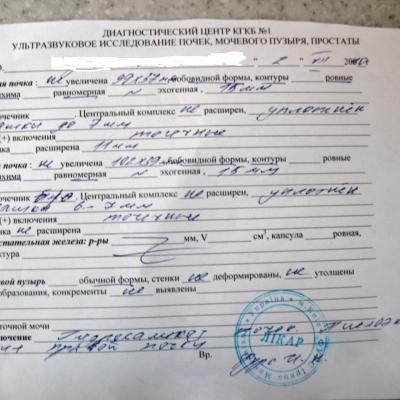 ДИАГНОСТИЧЕСКИЙ ЦЕНТР КГКБ №1
УЛЬТРАЗВУКОВОЕ ИССЛЕДОВАНИЕ ПОЧЕК, МОЧЕВОГО ПУЗЫРЯ, ПРОСТАТЫ
" 2 " VII 200
ая почка : не увеличена 99х57 бобовидной формы, контуры ровные
хима равномерная ~ эхогенная , 15 мм
ечник . Центральный комплекс не расширен, уплотнен
до 7 мм
(+) включения точечные
нка расширена 11 мм
почка : не увеличена бобовидной формы, контуры ровные
има равномерная ~ эхогенная , 15 мм
ечник . Центральный комплекс не расширен, уплотнен
6-7 мм
(+) включения точечные
нка не расширена
стательная железа: р-ры мм, V см³, капсула ровная,
ктура
вой пузырь обычной формы, стенки не деформированы, не утолщены
образования, конкременты не выявлены
точной мочи
лючение почек
правой почки
Вр.
ЛІКАР